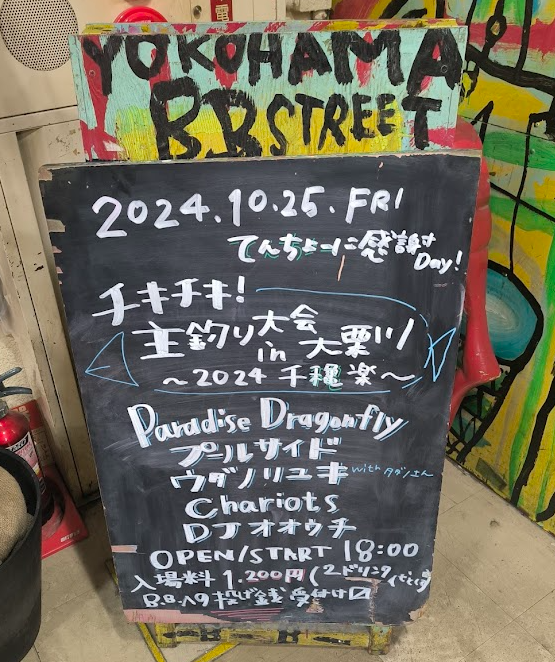 YOKOHAMA
B.B.STREET
2024.10.25.FRI
てんちょーに感謝すDay!
チキチキ!
主釣り大会
in 大栗川
〜2024 千穐楽〜
Paradise Dragonfly
プールサイド
ウダノリユキ with
Chariots
DJオオウチ
OPEN/START 18:00
入場料 1.200円(2ドリンク
投げ銭受付け